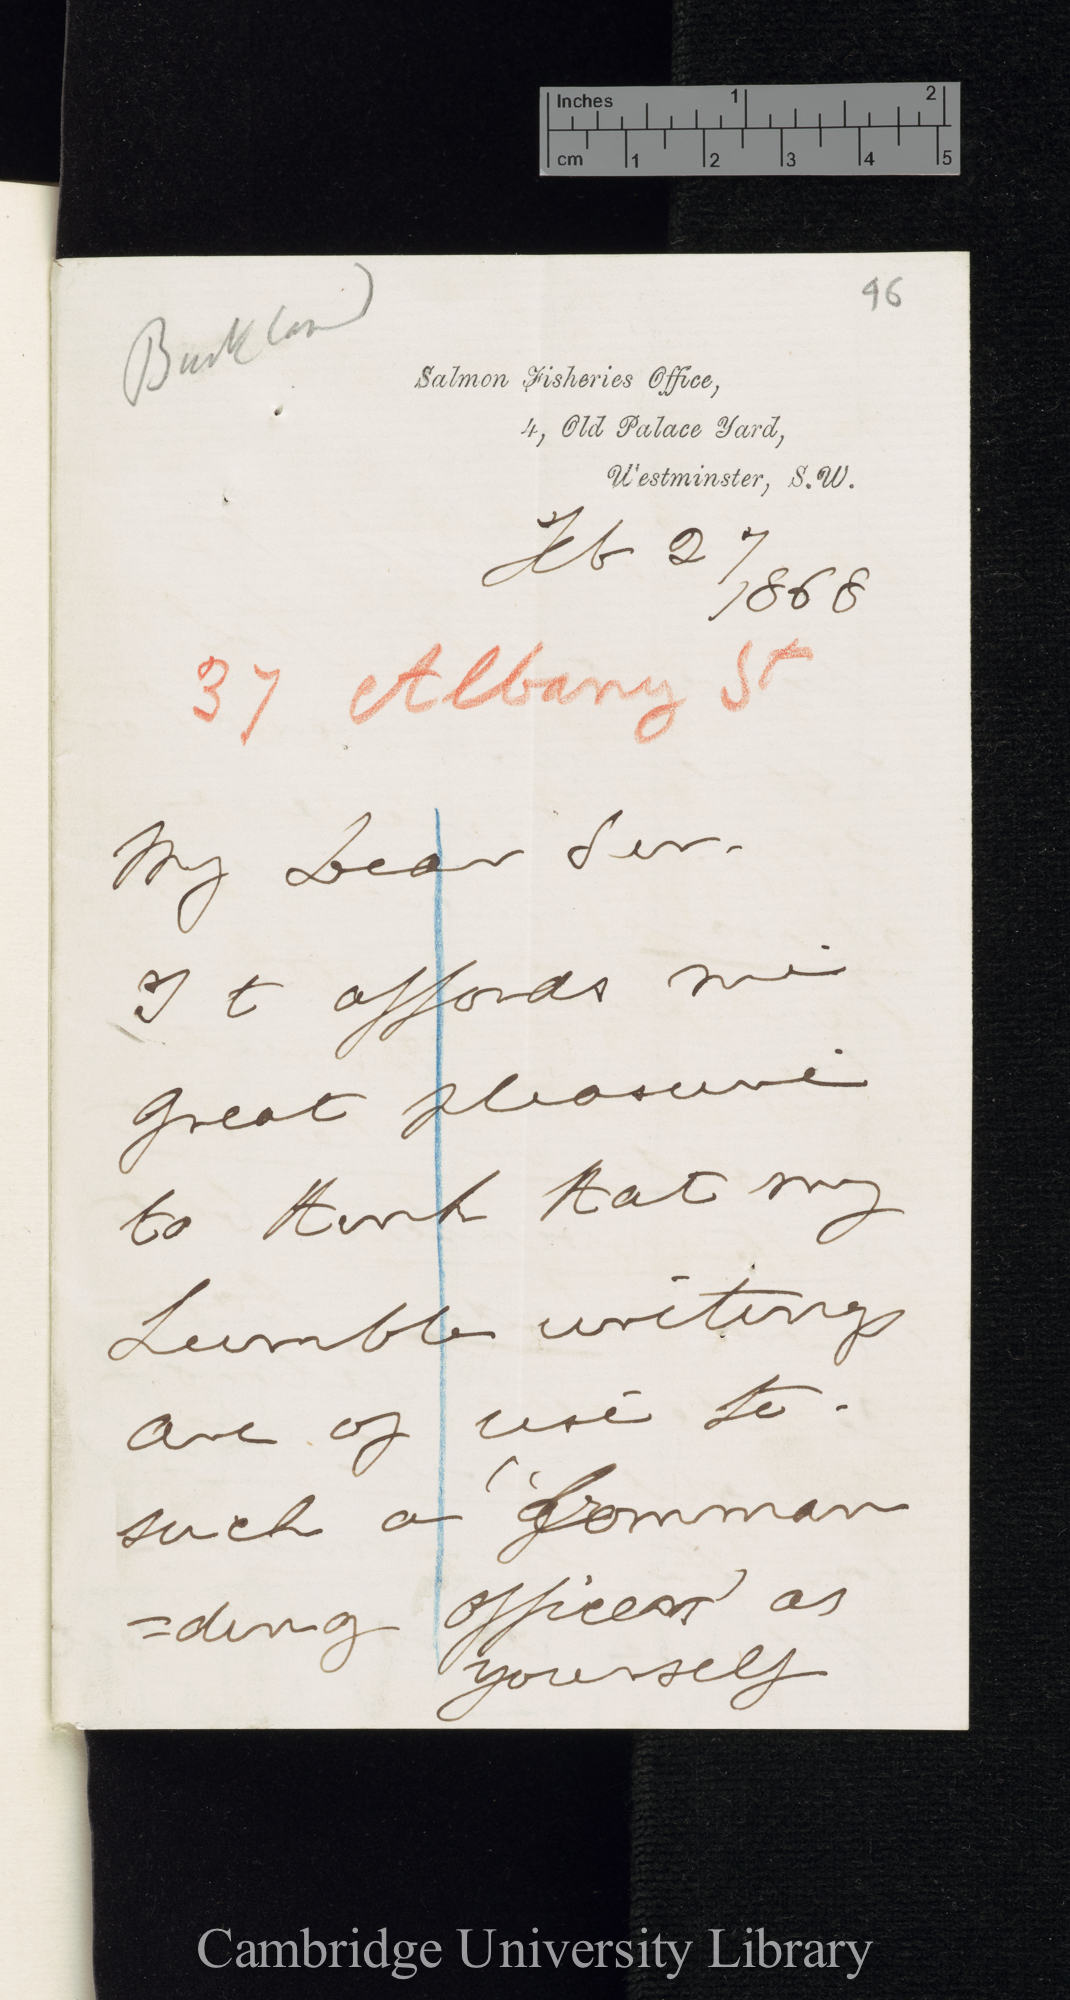 Inches 1 2
cm 1 2 3 4 5
Buckland
46
Salmon Fisheries Office,
4, Old Palace Yard,
Westminster, S.W.
Feb 27
1868
37 Albany St
My Dear Sir.
It affords me
great pleasure
to think that my
humble writings
are of use to.
such a "Comman
=ding officer" as
yourself
Cambridge University Library